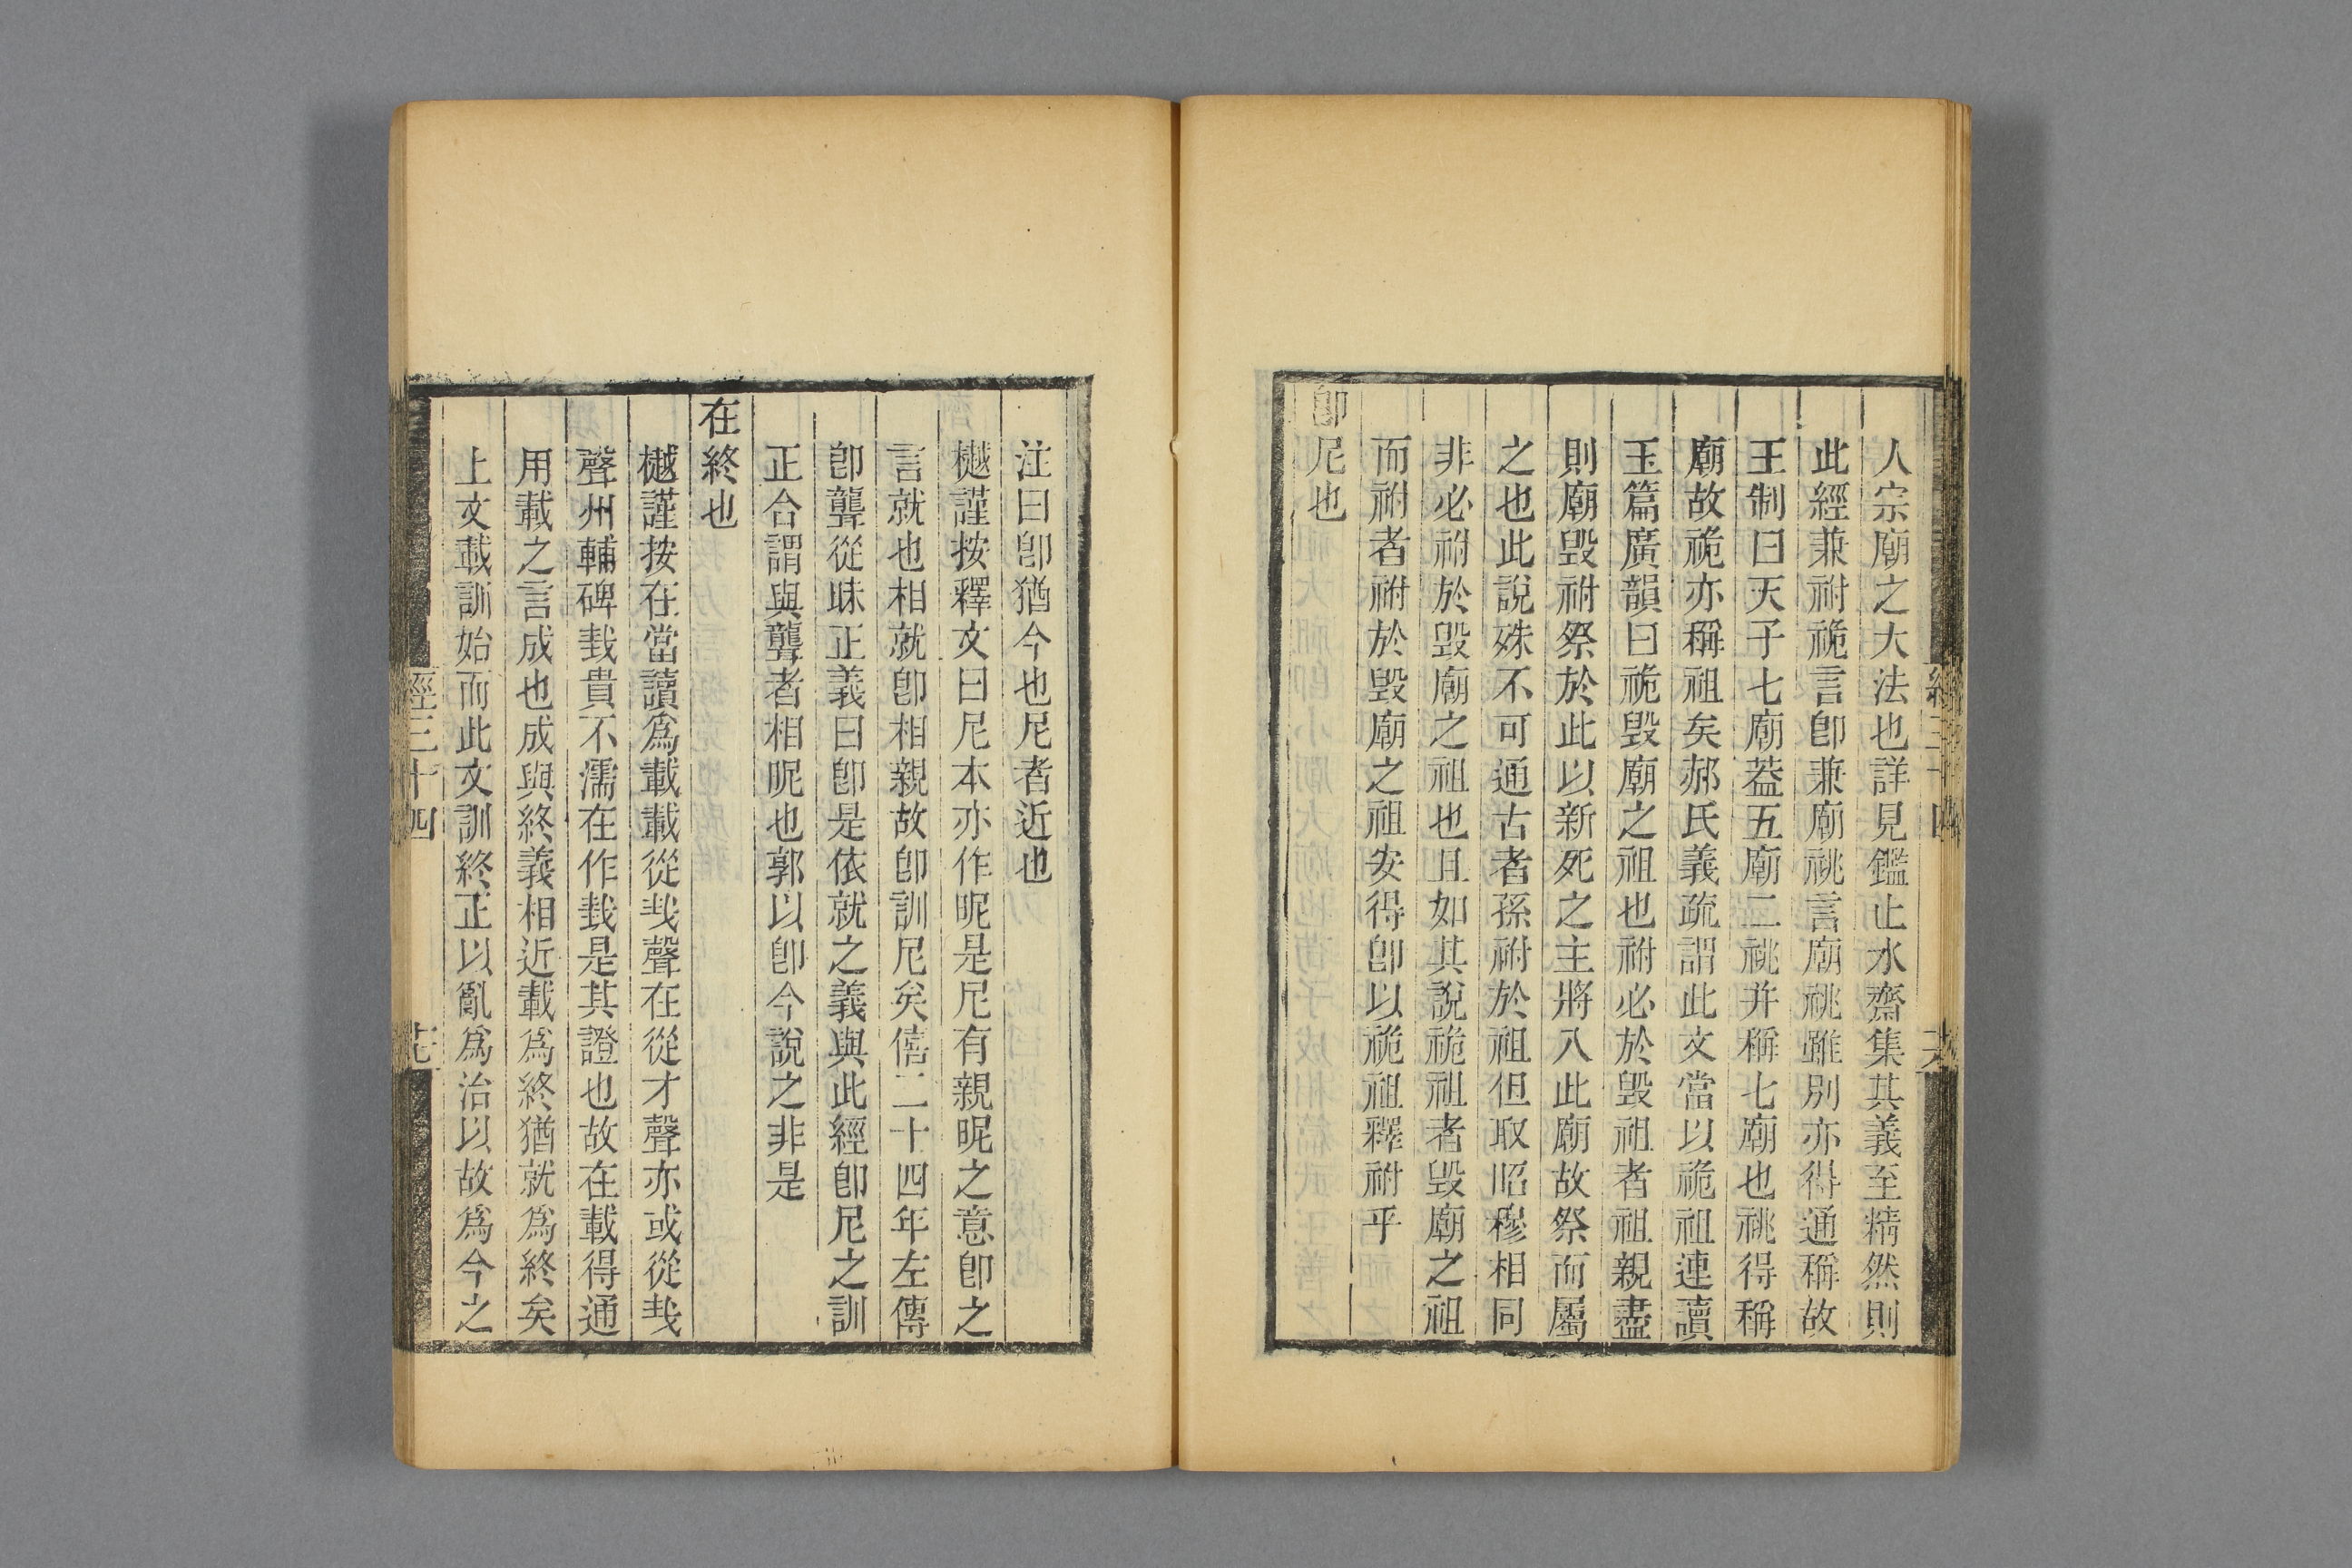 人宗廟之大法也詳見鑑止水齋集其義至精然則
此經兼祔祪言卽兼廟祧言廟祧雖別亦得通稱故
王制曰天子七廟葢五廟二祧并稱七廟也祧得稱
廟故祪亦稱祖矣郝氏義疏謂此文當以祪祖連讀
玉篇廣韻曰祪毀廟之祖也祔必於毀祖者祖親盡
則廟毀祔祭於此以新死之主將入此廟故祭而屬
之也此說殊不可通古者孫祔於祖但取昭穆相同
非必祔於毀廟之祖也且如其說祪祖者毀廟之祖
而祔者祔於毀廟之祖安得卽以祪祖釋祔乎
卽尼也
注曰卽猶今也尼者近也
樾謹按釋文曰尼本亦作昵是尼有親昵之意卽之
言就也相就卽相親故卽訓尼矣僖二十四年左傳
卽聾從昧正義曰卽是依就之義與此經卽尼之訓
正合謂與聾者相昵也郭以卽今說之非是
在終也
樾謹按在當讀爲載載從𢦏聲在從才聲亦或從𢦏
聲州輔碑㘽貴不濡在作㘽是其證也故在載得通
用載之言成也成與終義相近載爲終猶就爲終矣
上文載訓始而此文訓終正以亂爲治以故爲今之
經三十四